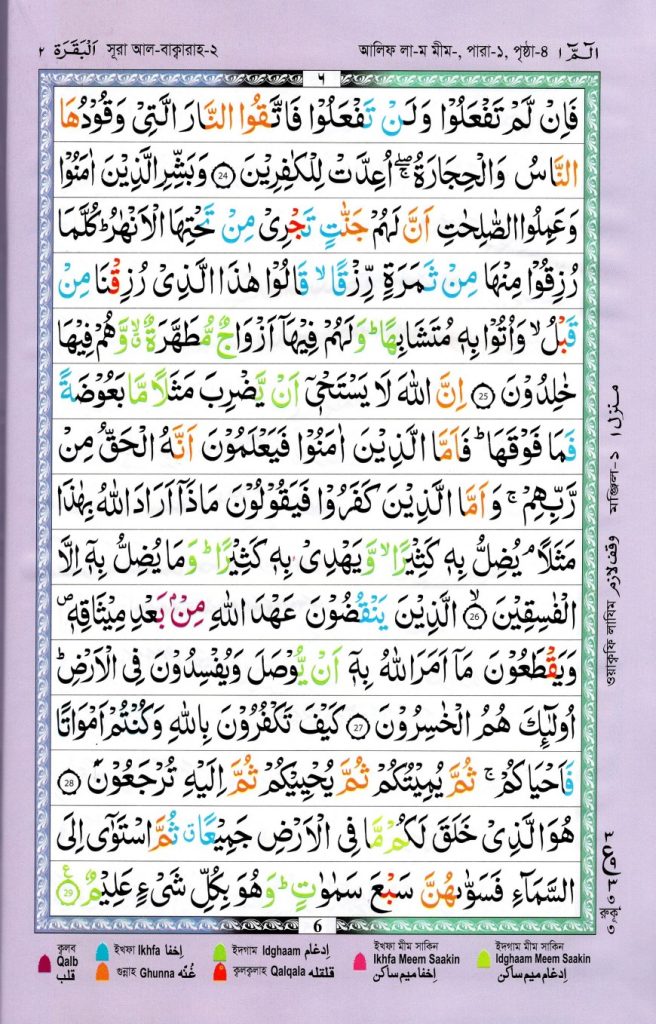 ٢ اَلْبَقَرَة সূরা আল-বাক্বারাহ-২ আলিফ লা-ম মীম-, পারা-১, পৃষ্ঠা-৪ الٓمّٓ ١
٦
فَاِنْ لَّمْ تَفْعَلُوْا وَلَنْ تَفْعَلُوْا فَاتَّقُوا النَّارَ الَّتِىْ وَقُوْدُهَا
النَّاسُ وَالْحِجَارَةُ ۚۖ اُعِدَّتْ لِلْكٰفِرِيْنَ 24 وَبَشِّرِ الَّذِيْنَ اٰمَنُوْا
وَعَمِلُوا الصّٰلِحٰتِ اَنَّ لَهُمْ جَنّٰتٍ تَجْرِىْ مِنْ تَحْتِهَا الْاَنْهٰرُ ؕ كُلَّمَا
رُزِقُوْا مِنْهَا مِنْ ثَمَرَةٍ رِّزْقًا ۙ قَالُوْا هٰذَا الَّذِىْ رُزِقْنَا مِنْ
قَبْلُ ۙ وَاُتُوْا بِهٖ مُتَشَابِهًا ؕ وَلَهُمْ فِيْهَآ اَزْوَاجٌ مُّطَهَّرَةٌ ۙۗ وَّهُمْ فِيْهَا
خٰلِدُوْنَ 25 اِنَّ اللّٰهَ لَا يَسْتَحْىٖٓ اَنْ يَّضْرِبَ مَثَلًا مَّا بَعُوْضَةً
فَمَا فَوْقَهَا ؕ فَاَمَّا الَّذِيْنَ اٰمَنُوْا فَيَعْلَمُوْنَ اَنَّهُ الْحَقُّ مِنْ
رَّبِّهِمْ ۚ وَاَمَّا الَّذِيْنَ كَفَرُوْا فَيَقُوْلُوْنَ مَاذَآ اَرَادَ اللّٰهُ بِهٰذَا
مَثَلًا ۘ يُضِلُّ بِهٖ كَثِيْرًا ۙ وَّيَهْدِىْ بِهٖ كَثِيْرًا ؕ وَمَا يُضِلُّ بِهٖٓ اِلَّا
الْفٰسِقِيْنَ ۙ 26 الَّذِيْنَ يَنْقُضُوْنَ عَهْدَ اللّٰهِ مِنْۢ بَعْدِ مِيْثَاقِهٖ ۪
وَيَقْطَعُوْنَ مَآ اَمَرَ اللّٰهُ بِهٖٓ اَنْ يُّوْصَلَ وَيُفْسِدُوْنَ فِى الْاَرْضِ ؕ
اُولٰٓئِكَ هُمُ الْخٰسِرُوْنَ 27 كَيْفَ تَكْفُرُوْنَ بِاللّٰهِ وَكُنْتُمْ اَمْوَاتًا
فَاَحْيَاكُمْ ۚ ثُمَّ يُمِيْتُكُمْ ثُمَّ يُحْيِيْكُمْ ثُمَّ اِلَيْهِ تُرْجَعُوْنَ 28
هُوَ الَّذِىْ خَلَقَ لَكُمْ مَّا فِى الْاَرْضِ جَمِيْعًا ۗ ثُمَّ اسْتَوٰٓى اِلَى
السَّمَآءِ فَسَوّٰىهُنَّ سَبْعَ سَمٰوٰتٍ ؕ وَهُوَ بِكُلِّ شَىْءٍ عَلِيْمٌ ع 29
6
منزل ١ মঞ্জিল-১
وقف لازم ওয়াক্বফি লাযিম
রুকূ ৩ ع
ক্বলব Qalb قلب
ইখফা Ikhfa اِخفا
গুন্নাহ Ghunna غُنَّه
ইদগাম Idghaam اِدغام
ক্বলক্বলাহ Qalqala قلقله
ইখফা মীম সাকিন Ikhfa Meem Saakin اِخفا ميم ساكن
ইদগাম মীম সাকিন Idghaam Meem Saakin اِدغام ميم ساكن